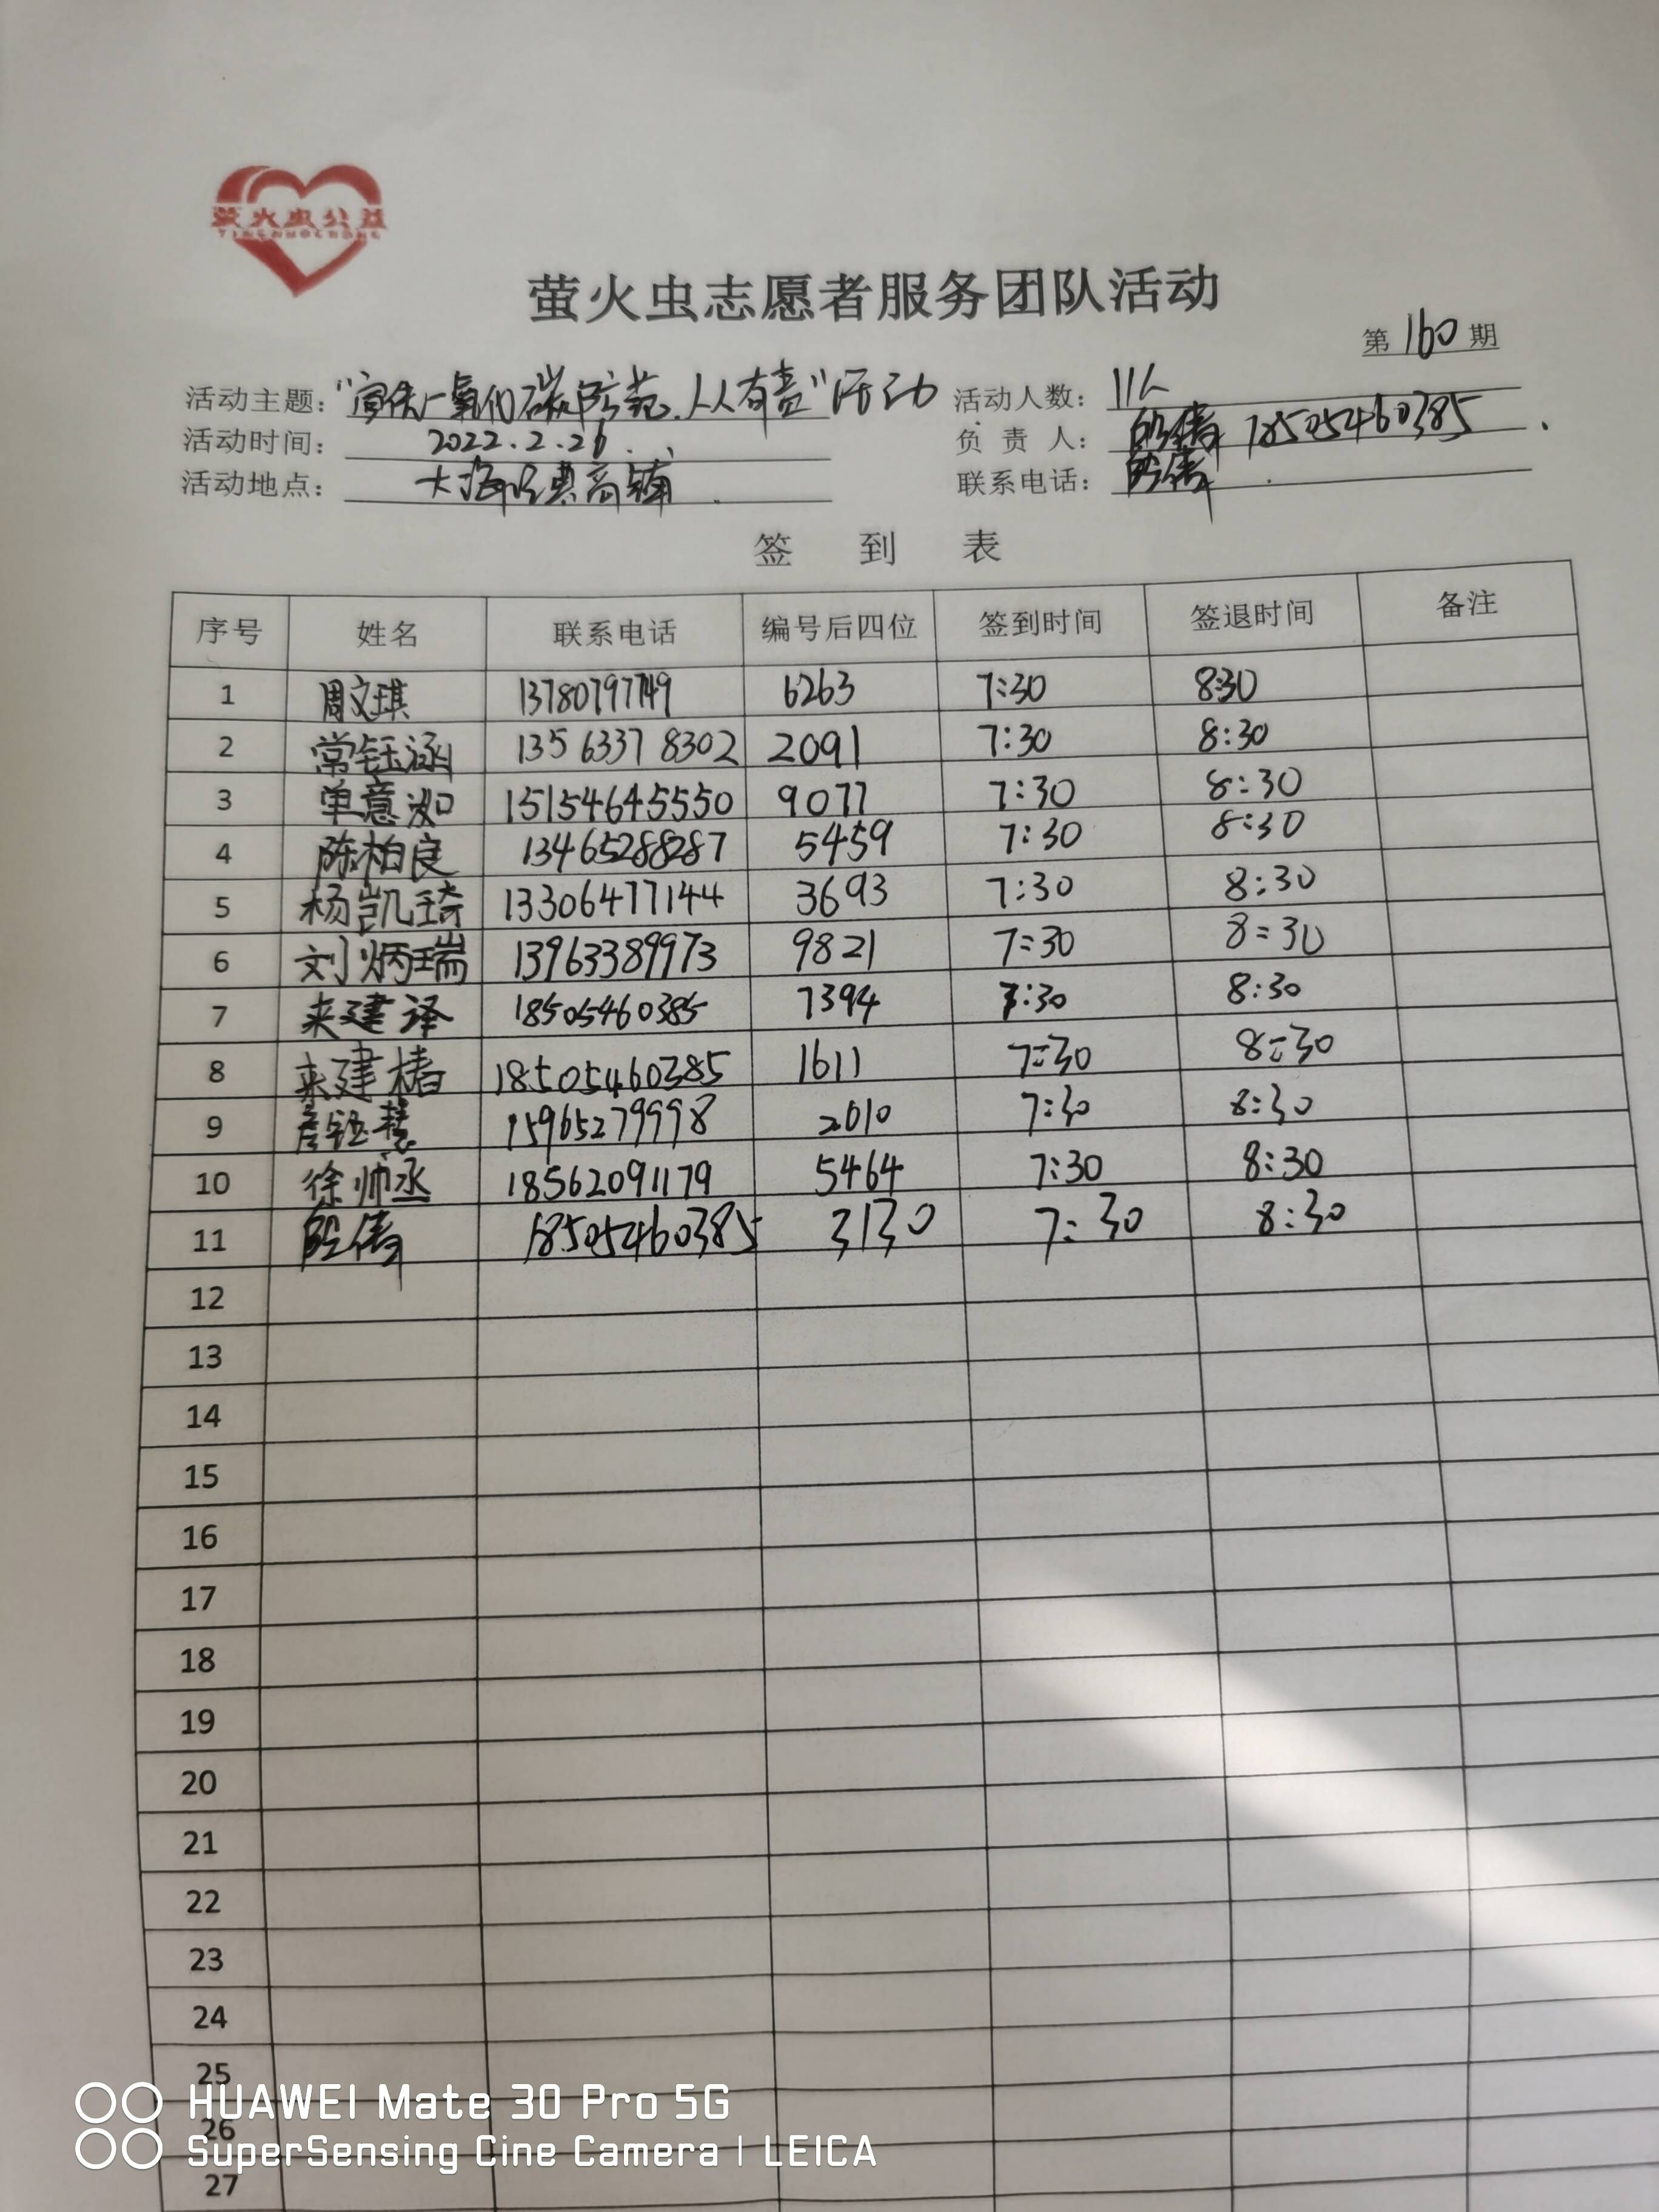 萤火虫公益
萤火虫志愿者服务团队活动
第160期
活动主题："宣传一氧化碳防范.人人有责"活动 活动人数：11人
活动时间：2022.2.26. 负责人：倩 18505460385
活动地点：大海经典商铺 联系电话：倩
签到表
序号 姓名 联系电话 编号后四位 签到时间 签退时间 备注
1 周文琪 13780797749 6263 7:30 8:30
2 常钰涵 13563378302 2091 7:30 8:30
3 单意如 15154645550 9077 7:30 8:30
4 陈柏良 13465288287 5459 7:30 8:30
5 杨凯琦 13306477144 3693 7:30 8:30
6 刘炳瑞 13963389973 9821 7:30 8:30
7 来建译 18505460385 7394 7:30 8:30
8 来建楮 18505460385 1611 7:30 8:30
9 钰慧 15965279998 2010 7:30 8:30
10 徐帅丞 18562091179 5464 7:30 8:30
11 倩 18505460385 3130 7:30 8:30
12
13
14
15
16
17
18
19
20
21
22
23
24
25
26
27
HUAWEI Mate 30 Pro 5G
SuperSensing Cine Camera | LEICA